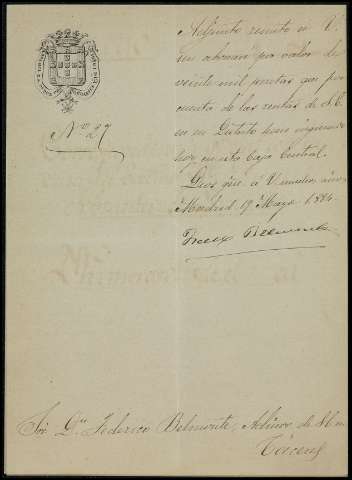 Nº 27
Adjunto remito á V.
un abonaré por valor de
veinte mil pesetas que por
cuenta de las rentas de S.E.
en su Estado han ingresado
hoy en esta Caja Central.
Dios gue. á V. muchos años
Madrid 19 Mayo 1884
Sor. Dn. Federico Belmonte, Admor. de S.E. en